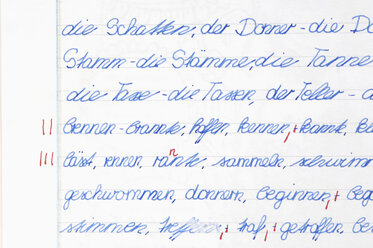 die Schatten, der Donner - die Do
Stamm - die Stämme, die Tanne
die Tasse - die Tassen, der Teller - d
brennen - brannte, hoffen, kennen, + kannte, kö
lässt, rennen, rannte, sammeln, schwimm
geschwommen, donnern, beginnen, + beg
stimmen, treffen, + traf, + getroffen, be